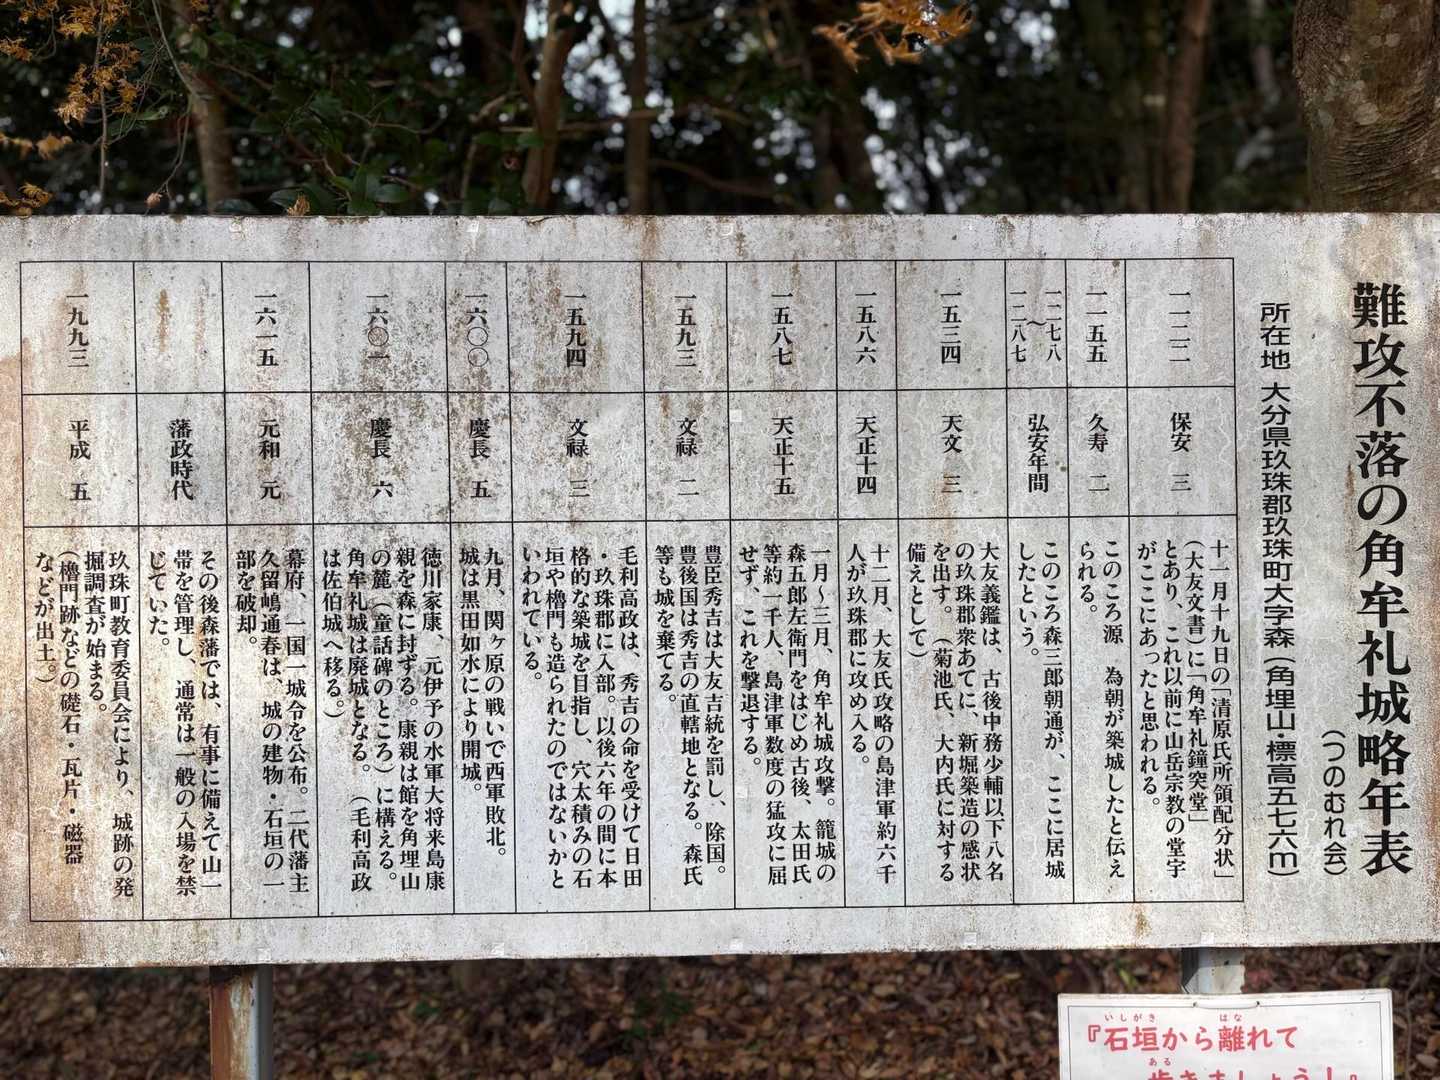 難攻不落の角牟礼城略年表
(つのむれ会)
所在地 大分県玖珠郡玖珠町大字森(角埋山・標高五七六m)
一一二二
保安 三
十一月十九日の「清原氏所領配分状」
(大友文書)に「角牟礼鐘突堂」
とあり、これ以前に山岳宗教の堂宇
がここにあったと思われる。
一一五五
久寿 二
このころ源 為朝が築城したと伝え
られる。
一二七八
〜
一二八七
弘安年間
このころ森三郎朝通が、ここに居城
したという。
一五三四
天文 三
大友義鑑は、古後中務少輔以下八名
の玖珠郡衆あてに、新堀築造の感状
を出す。(菊池氏、大内氏に対する
備えとして)
一五八六
天正十四
十二月、大友氏攻略の島津軍約六千
人が玖珠郡に攻め入る。
一五八七
天正十五
一月〜三月、角牟礼城攻撃。籠城の
森五郎左衛門をはじめ古後、太田氏
等約一千人、島津軍数度の猛攻に屈
せず、これを撃退する。
一五九三
文禄 二
豊臣秀吉は大友吉統を罰し、除国。
豊後国は秀吉の直轄地となる。森氏
等も城を棄てる。
一五九四
文禄 三
毛利高政は、秀吉の命を受けて日田
・玖珠郡に入部。以後六年の間に本
格的な築城を目指し、穴太積みの石
垣や櫓門も造られたのではないかと
いわれている。
一六〇〇
慶長 五
九月、関ヶ原の戦いで西軍敗北。
城は黒田如水により開城。
一六〇一
慶長 六
徳川家康、元伊予の水軍大将来島康
親を森に封ずる。康親は館を角埋山
の麓(童話碑のところ)に構える。
角牟礼城は廃城となる。(毛利高政
は佐伯城へ移る。)
一六一五
元和 元
幕府、一国一城令を公布。二代藩主
久留嶋通春は、城の建物・石垣の一
部を破却。
藩政時代
その後森藩では、有事に備えて山一
帯を管理し、通常は一般の入場を禁
じていた。
一九九三
平成 五
玖珠町教育委員会により、城跡の発
掘調査が始まる。
(櫓門跡などの礎石・瓦片・磁器
などが出土。)
いしがき はな
『石垣から離れて
ある
歩きましょう!』